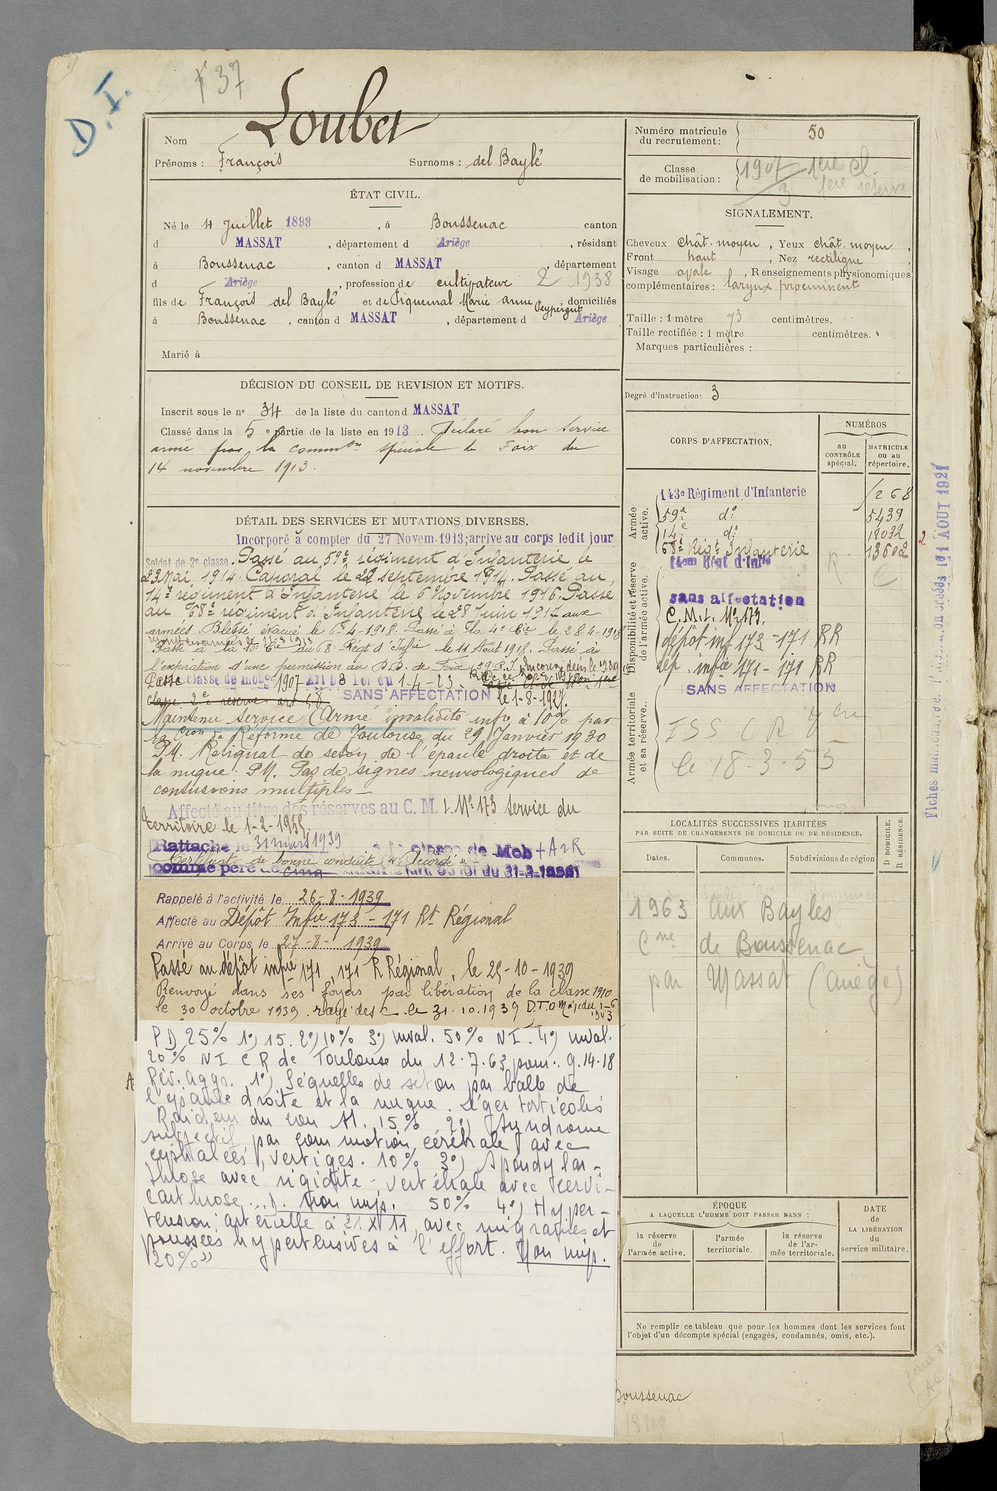 D.I.
137
Nom Loubet
Prénoms : François Surnoms : del Baylé
ÉTAT CIVIL.
Né le 4 Juillet 1893, à Boussenac canton
d MASSAT, département d Ariège, résidant
à Boussenac, canton d MASSAT, département
d Ariège, profession de cultivateur 2 1938
fils de François del Baylé et de Piquemal Marie anne Peyperguet, domiciliés
à Boussenac, canton d MASSAT, département d Ariège
Marié à
DÉCISION DU CONSEIL DE REVISION ET MOTIFS.
Inscrit sous le n° 34 de la liste du canton d MASSAT
Classé dans la 5e partie de la liste en 1913. Déclaré bon service
armé par la common spéciale de Foix du
14 novembre 1913.
DÉTAIL DES SERVICES ET MUTATIONS DIVERSES.
Incorporé à compter du 27 Novem. 1913; arrive au corps ledit jour
Soldat de 2e classe. Passé au 59e régiment d'Infanterie le
23 Mai 1914. Caporal le 22 septembre 1914. Passé au
14e régiment d'Infanterie le 6 Novembre 1916. Passé
au 68e régiment d'Infanterie le 28 Juin 1917 aux
armées. Blessé évacué le 6-4-1918. Passé à la 4e Cie le 28-4-1918
Passé à la 10e Cie du 68 Régt d'Infie le 11 Août 1918. Passé à
l'expiration d'une permission au D.D. de Foix (59 R.I.
Passé classe de mobon 1907 Art 58 loi du 1-4-23
classe 2e réserve art 58 SANS AFFECTATION le 1-8-1927.
Maintenu Service Armé invalidité infre à 10% par
la Cion de Réforme de Toulouse du 29 Janvier 1930
P.M. Reliquat de seton de l'épaule droite et de
la nuque. P.M. Pas de signes neurologiques de
contusions multiples
Affecté au titre des réserves au C. M. I. N° 173 service du
territoire le 1-2-1938
Rattaché le 31 mars 1939 classe de Mob
Certificat de bonne conduite "Accordé"
comme père de cinq
Rappelé à l'activité le 26-8-1939
Affecté au Dépôt Infie 173 - 171 Rt Régional
Arrivé au Corps le 27-8-1939
Passé au dépôt infie 171, 171 R Régional, le 25-10-1939
Renvoyé dans ses foyers par libération de la classe 1910
le 30 octobre 1939. rayé des c. le 31.10.1939
PD 25% 1°) 15. 2°) 10% 3°) inval. 50% NI. 4°) inval.
20% NI CR de Toulouse du 12.7.63 pour : g.14-18
Rév. aggr. 1°) Séquelles de seton par balle de
l'épaule droite et la nuque. Léger torticolis
Raideur du cou M. 15% 2°) Syndrome
subjectif par commotion cérébrale avec
céphalées, vertiges. 10% 3°) Spondylar-
throse avec rigidité vertébrale avec cervi-
carthrose... Non imp. 50% 4°) Hyper-
tension artérielle à 21 x 11, avec migraines et
poussées hypertensives à l'effort. Non imp.
20%"
Numéro matricule du recrutement : 50
Classe de mobilisation : 1907 1ère cl.
3 1ère réserve
SIGNALEMENT.
Cheveux chât. moyen, Yeux chât. moyen,
Front haut, Nez rectiligne
Visage ovale, Renseignements physionomiques
complémentaires : larynx proéminent
Taille : 1 mètre 73 centimètres.
Taille rectifiée : 1 mètre centimètres.
Marques particulières :
Degré d'instruction : 3
CORPS D'AFFECTATION.
NUMÉROS
au CONTRÔLE spécial.
MATRICULE ou au répertoire.
Armée active.
143e Régiment d'Infanterie 1268
59e d° 5439
14e d° 18032
68e Régt Infanterie 13602
14eme Régt d'Infie
Disponibilité et réserve de l'armée active.
sans affectation
C.M.I. N° 173.
dépôt inf 173-171 RR
dép. infie 171-171 RR
Armée territoriale et sa réserve.
SANS AFFECTATION
le 18-3-53
LOCALITÉS SUCCESSIVES HABITÉES
PAR SUITE DE CHANGEMENTS DE DOMICILE OU DE RÉSIDENCE.
Dates. Communes. Subdivisions de région
D DOMICILE.
R RÉSIDENCE.
1963 aux Bayles
Cne de Boussenac
par Massat (Ariège)
ÉPOQUE
A LAQUELLE L'HOMME DOIT PASSER DANS :
la réserve de l'armée active.
l'armée territoriale.
la réserve de l'armée territoriale.
DATE de LA LIBÉRATION du service militaire.
Ne remplir ce tableau que pour les hommes dont les services font
l'objet d'un décompte spécial (engagés, condamnés, omis, etc.).
Boussenac